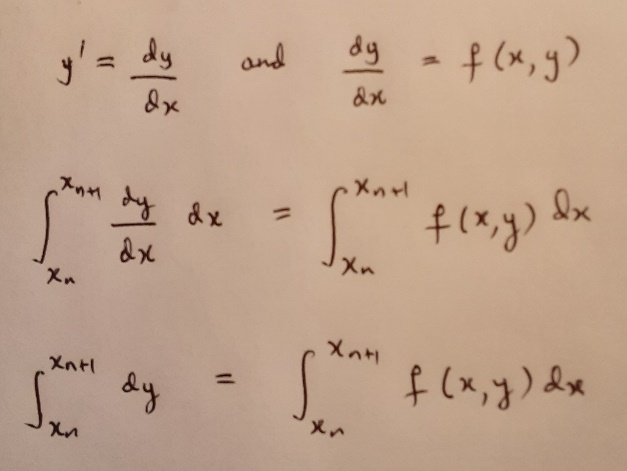 y' = dy/dx and dy/dx = f(x,y)
∫_{xₙ}^{xₙ₊₁} dy/dx dx = ∫_{xₙ}^{xₙ₊₁} f(x,y) dx
∫_{xₙ}^{xₙ₊₁} dy = ∫_{xₙ}^{xₙ₊₁} f(x,y) dx